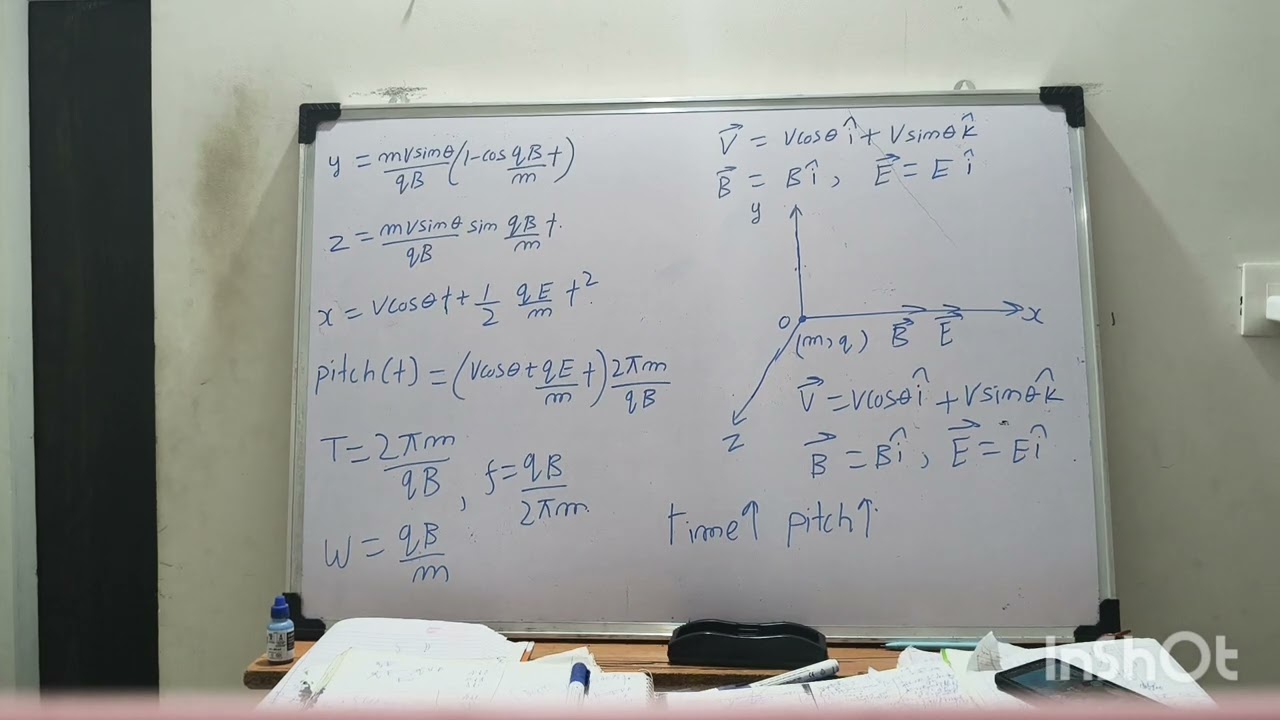 y = mvsinθ/qB (1-cos qB/m t)
z = mvsinθ/qB sin qB/m t.
x = vcosθt + 1/2 qE/m t²
pitch(t) = (vcosθ + qE/m t) 2πm/qB
T = 2πm/qB , f = qB/2πm
W = qB/m
V⃗ = vcosθ î + vsinθ k̂
B⃗ = B î , E⃗ = E î
y
O
x
(m,q) B⃗ E⃗
z
V⃗ = vcosθ î + vsinθ k̂
B⃗ = B î , E⃗ = E î
time↑ pitch↑
InshOt